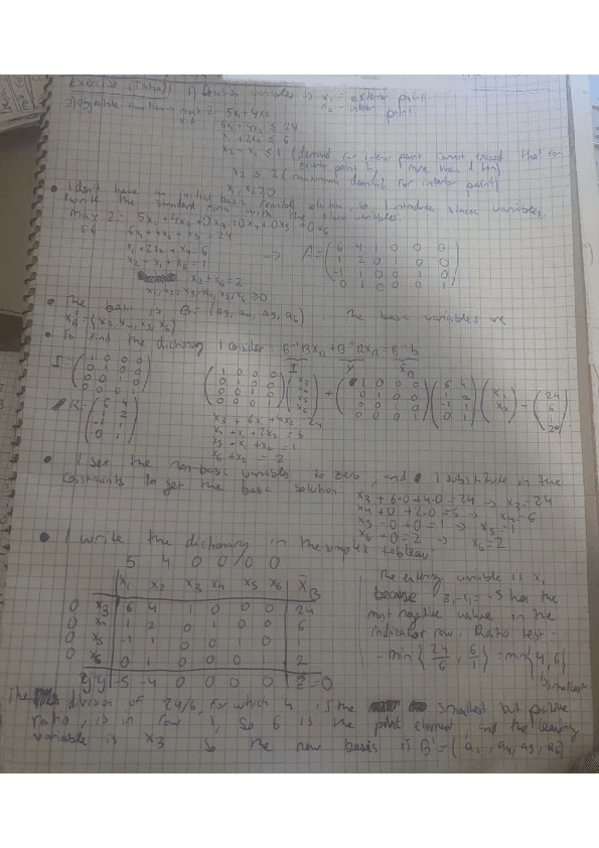 Exercise (TAHA) 1) Decision variables → x₁ = exterior paint
x₂ = interior paint
2) Objective function → max z = 5x₁ + 4x₂
s.t. 6x₁ + 4x₂ ≤ 24
x₁ + 2x₂ ≤ 6
x₂ - x₁ ≤ 1 (demand for interior paint cannot exceed that for exterior paint by more than 1 ton)
x₂ ≤ 2 (maximum demand for interior paint)
x₁, x₂ ≥ 0
• I don't have an initial basic feasible solution, so I introduce slack variables.
I write the standard form with the slack variables.
max z = 5x₁ + 4x₂ + 0x₃ + 0x₄ + 0x₅ + 0x₆
s.t. 6x₁ + 4x₂ + x₃ = 24
x₁ + 2x₂ + x₄ = 6
x₂ - x₁ + x₅ = 1
x₂ + x₆ = 2
x₁, x₂, x₃, x₄, x₅, x₆ ≥ 0
→ A = ( 6 4 1 0 0 0
1 2 0 1 0 0
-1 1 0 0 1 0
0 1 0 0 0 1 )
• The basis is B = (a₃, a₄, a₅, a₆). The basic variables are
x_B = {x₃, x₄, x₅, x₆}
• To find the dictionary I consider: B⁻¹B x_B + B⁻¹R x_R = B⁻¹b
I Y x̄_B
I = ( 1 0 0 0
0 1 0 0
0 0 1 0
0 0 0 1 )
R = ( 6 4
1 2
-1 1
0 1 )
( 1 0 0 0
0 1 0 0
0 0 1 0
0 0 0 1 ) ( x₃
x₄
x₅
x₆ ) + ( 1 0 0 0
0 1 0 0
0 0 1 0
0 0 0 1 ) ( 6 4
1 2
-1 1
0 1 ) ( x₁
x₂ ) = ( 24
6
1
2 )
x₃ + 6x₁ + 4x₂ = 24
x₄ + x₁ + 2x₂ = 6
x₅ - x₁ + x₂ = 1
x₆ + x₂ = 2
• I set the non-basic variables to zero, and I substitute in the
constraints to get the basic solution
x₃ + 6·0 + 4·0 = 24 → x₃ = 24
x₄ + 0 + 2·0 = 6 → x₄ = 6
x₅ - 0 + 0 = 1 → x₅ = 1
x₆ + 0 = 2 → x₆ = 2
• I write the dictionary in the simplex tableau:
5 4 0 0 0 0
x₁ x₂ x₃ x₄ x₅ x₆ x̄_B
0 x₃ 6 4 1 0 0 0 24
0 x₄ 1 2 0 1 0 0 6
0 x₅ -1 1 0 0 0
0 x₆ 0 1 0 0 0 2
zj-cj -5 -4 0 0 0 0 z̄ = 0
The entering variable is x₁
because z₁-c₁ = -5 has the
most negative value in the
indicator row. Ratio test:
- min {24/6, 6/1} = min {4, 6}
smallest
The division of 24/6, for which 4 is the smallest but positive
ratio, is in row 1, so 6 is the pivot element, and the leaving
variable is x₃ so the new basis is B' = (a₁, a₄, a₅, a₆)